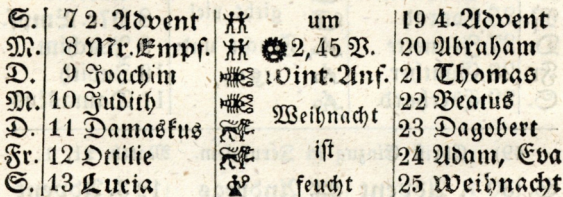 S. 7 2. Advent um 19 4. Advent
M. 8 Mr. Empf. 2, 45 V. 20 Abraham
D. 9 Joachim Wint. Anf. 21 Thomas
M. 10 Judith Weihnacht 22 Beatus
D. 11 Damaskus 23 Dagobert
Fr. 12 Ottilie ist 24 Adam, Eva
S. 13 Lucia feucht 25 Weihnacht